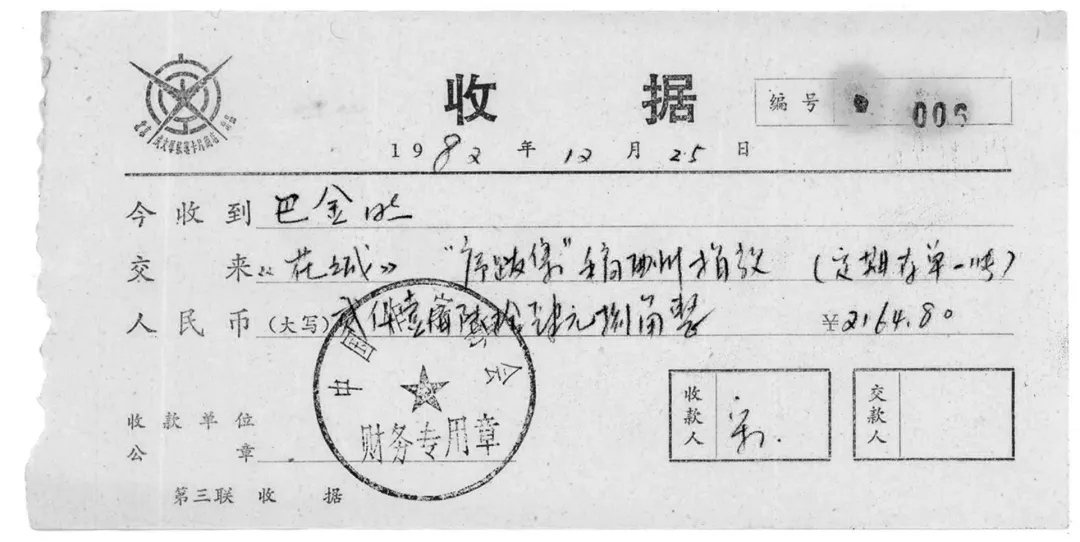 收 据
编号 006
1982 年 12 月 25 日
今收到 巴金
交 来 《花城》 "序跋集" 稿 捐款 (定期存单一張)
人民币 (大写) 贰仟壹佰陆拾肆元捌角整 ¥2164.80
中国 会
财务专用章
收款单位
公 章
收款人
交款人
第三联 收 据